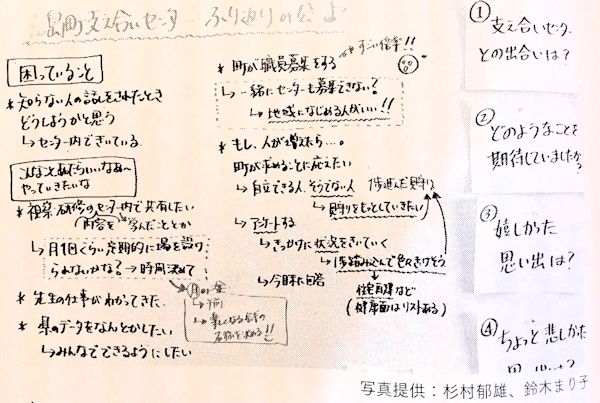 支え合いセンター ふり返りの会♪
困っていること
* 知らない人の話しをされたとき
どうしようかと思う
↳ センター内できいている.
こんなことあったらいいなぁ〜
やっていきたいな
* 視察・研修のセンター内で共有したい
内容を 学んだこととか
↳ 月1回くらい定期的に場を設け
られないかなぁ? → 時間決めて
月の一度
* 先生の仕事がわかってきた.
* 県のデータをなんとかしたい
↳ みんなでできるようにしたい
* 町が職員募集をする すごい倍率!!
↳ 一緒にセンターも募集できない?
↳ 地域になじめる人がいい!!
* もし、人が増えたら…。
町が求めることに応えたい
↳ 自立できる人、そうでない人 1歩進んだ見守り
↳ 見守りをもっとしていきたい
↳ アンケートする
↳ きっかけに状況をきいていく
↳ 1歩踏み込んで色々ききそう
↳ 今日末に回答
住宅再建など
(健康面はリストある)
① 支え合いセンター
との出合いは?
② どのようなことを
期待していましたか
③ 嬉しかった
思い出は?
④ ちょっと悲しかた
写真提供：杉村郁雄、鈴木まり子